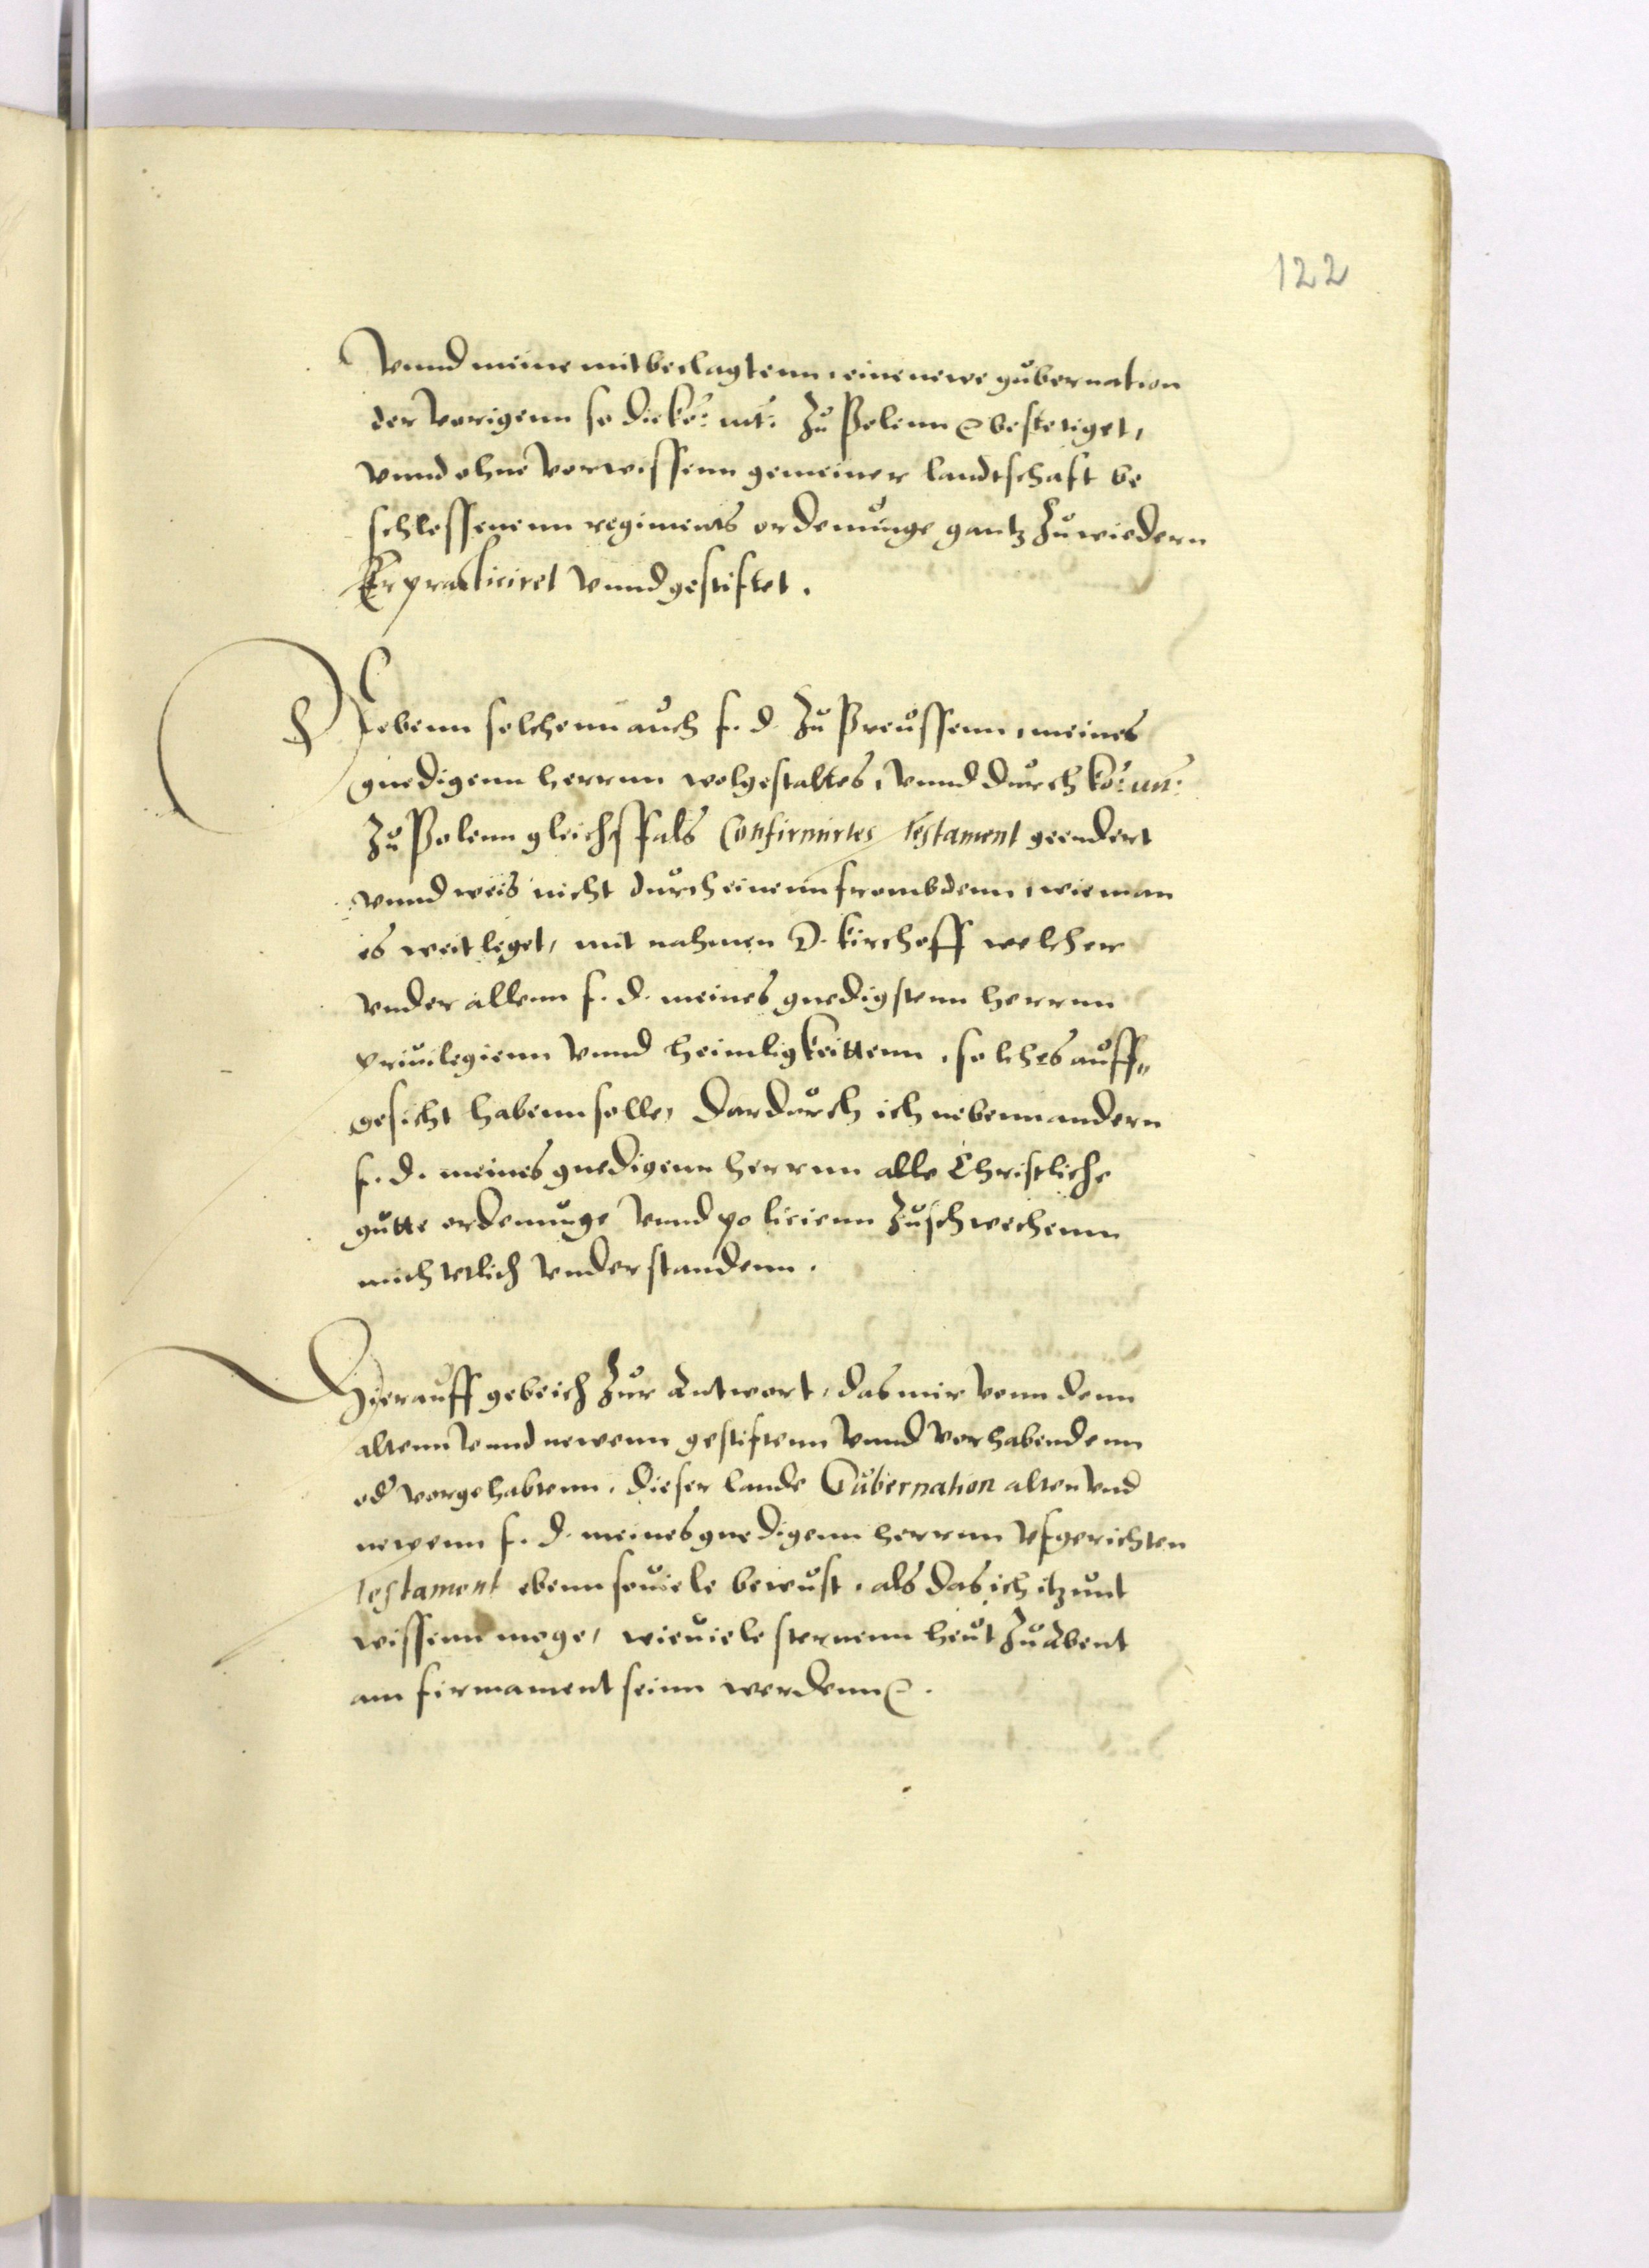 122
Vnnd meine mitbeclagtenn, eine newe gubernation
der vorigenn so die ko: mt: zu Polenn bestetiget,
vnnd ohne vorwissenn gemeiner landtschaft be
schlossenenn regiments ordenunge gantz zuwiedern
Er practiciret vnnd gestiftet.
Nebenn solchenn auch f. d. zu Preussenn, meines
gnedigenn herrnn wolgestaltes, vnnd durch ko: mt:
zu Polenn gleichsfals Confirmirtes Testament geendert
vnnd weis nicht durch einenn frembdenn, wie man
es weit leget, mit nahmen D. kirchoff welcher
vnder allenn f. d. meines gnedigstenn herrnn
priuilegienn vnnd heimligkeittenn, solches auff„
gesicht habenn solle, dardurch ich nebenn andern
f. d. meines gnedigenn herrnn alle Christliche
gutte ordenunge vnnd policienn zuschwechenn
mich etlich vnderstandenn.
Hierauff gebe ich zur Antwort, das mir vonn denn
altenn vnnd newenn gestiftenn vnnd vorhabendenn
od vorgehabtenn, dieser lande Gubernation alten vnd
newenn f. d. meines gnedigenn herrnn vfgerichten
testament ebenn souiele bewust, als das ich itzunt
wissenn moge, wieuiele sternenn heut zu Abent
am firmament seinn werdenn.